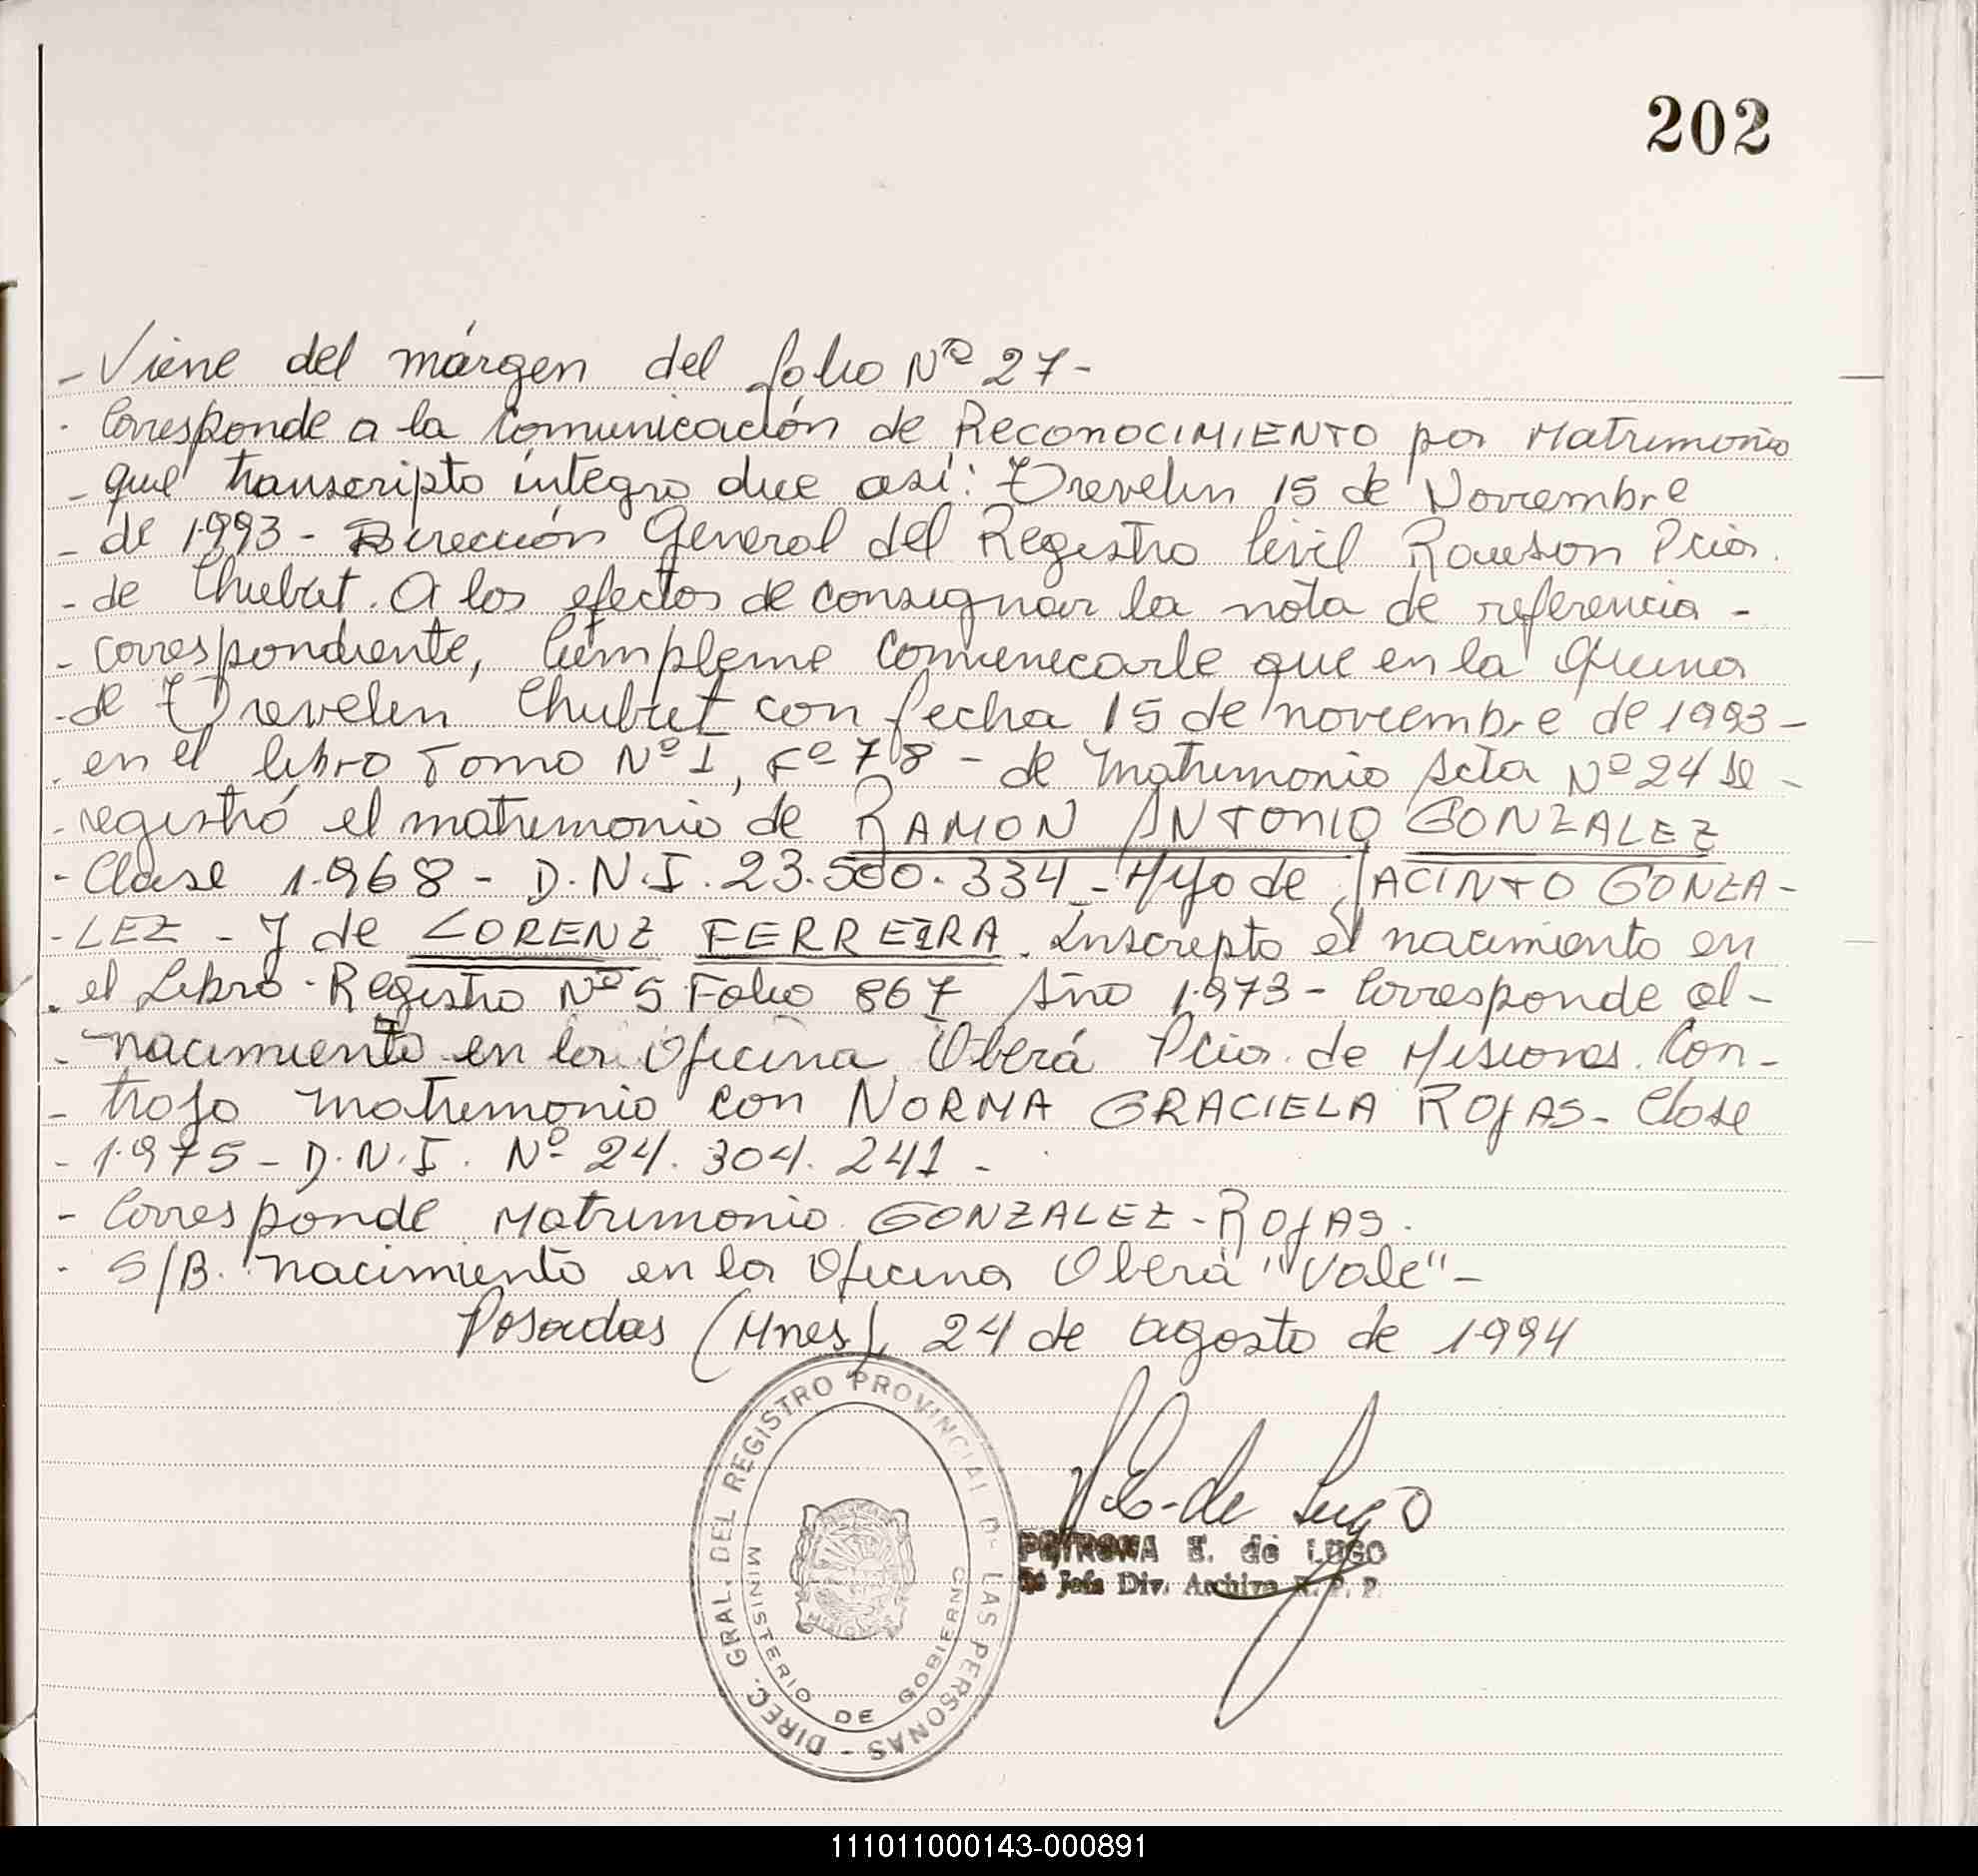 202
- Viene del márgen del folio Nº 27-
- Corresponde a la Comunicación de RECONOCIMIENTO por Matrimonio
- que transcripto íntegro dice así: Trevelin 15 de Noviembre
- de 1.993 - Dirección General del Registro Civil Rawson Pcia.
- de Chubut. A los efectos de consignar la nota de referencia -
- correspondiente, Cúmpleme comunicarle que en la Oficina
- de Trevelin Chubut con fecha 15 de noviembre de 1993 -
- en el libro Tomo Nº I, Fº 78 - de Matrimonio Acta Nº 24 se -
- registró el matrimonio de RAMON ANTONIO GONZALEZ
- Clase 1.968 - D.N.I. 23.500.334 - Hijo de JACINTO GONZA-
- LEZ - Y de LORENZ FERREIRA. Inscripto el nacimiento en
- el Libro - Registro Nº 5 Folio 867 Año 1.973 - Corresponde al -
- nacimiento en la Oficina Oberá Pcia. de Misiones. Con-
- trajo matrimonio con NORMA GRACIELA ROJAS - Clase
- 1.975 - D.N.I. Nº 24.304.241 -
- Corresponde Matrimonio GONZALEZ - ROJAS.
- S/B. nacimiento en la Oficina Oberá "Vale" -
Posadas (Mnes), 24 de agosto de 1.994
DIREC. GRAL. DEL REGISTRO PROVINCIAL DE LAS PERSONAS -
MINISTERIO DE GOBIERNO
P. E. de Lugo
PETRONA E. de LUGO
Jefa Div. Archivo R. P. P.
111011000143-000891